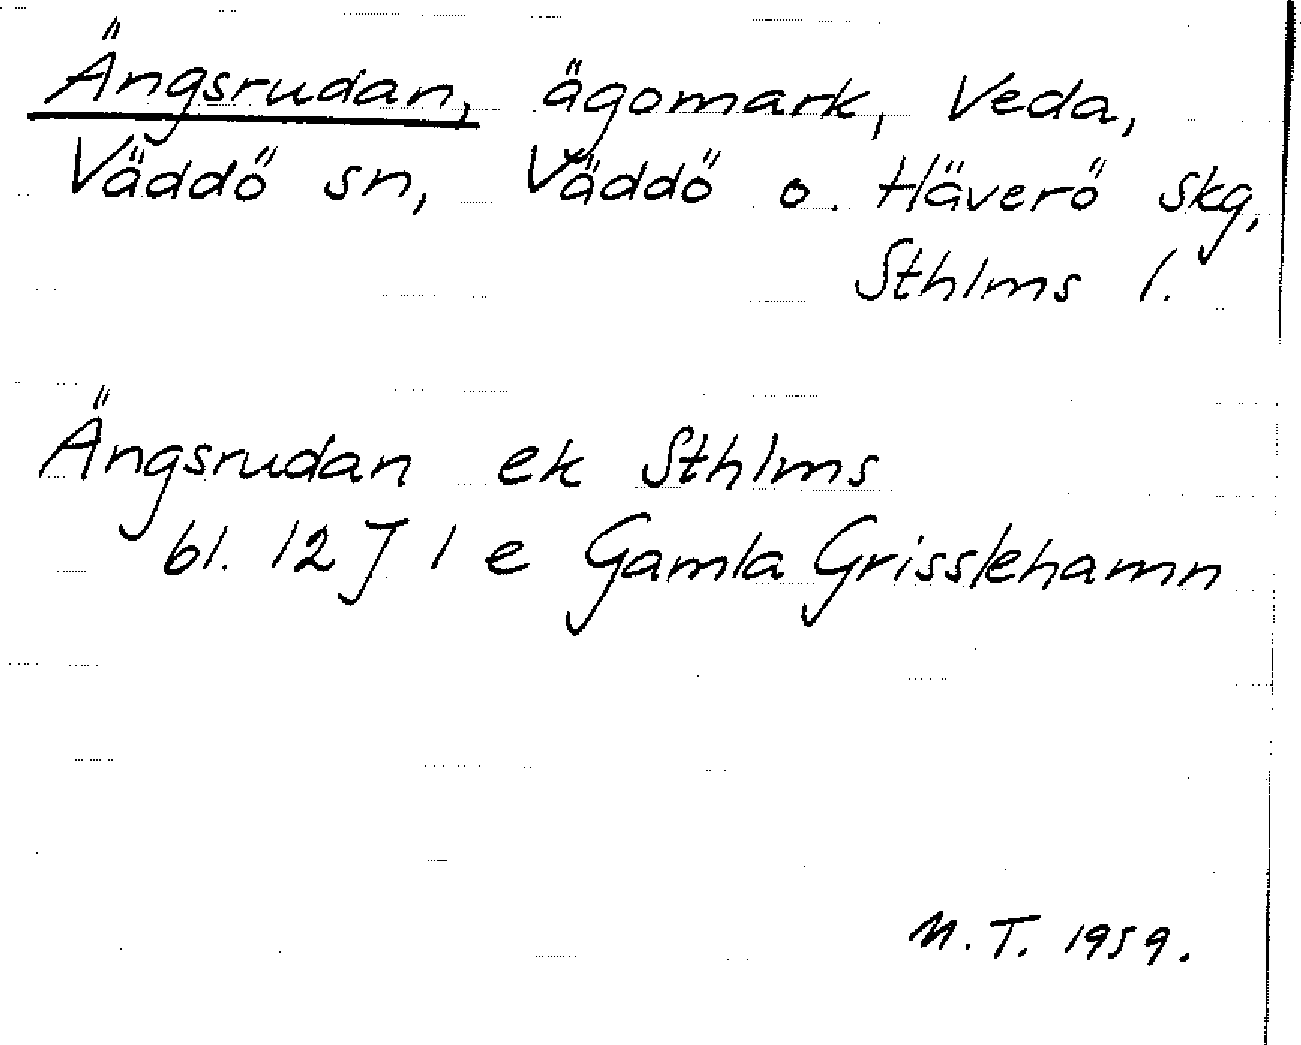 Ängsrudan, ägomark, Veda,
Väddö sn, Väddö o. Häverö skg,
Sthlms l.
Ängsrudan ek Sthlms
bl. 12 J 1 e Gamla Grisslehamn
M. T. 1959.